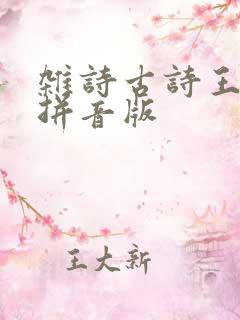 雜詩古詩王
拼音版
王大新